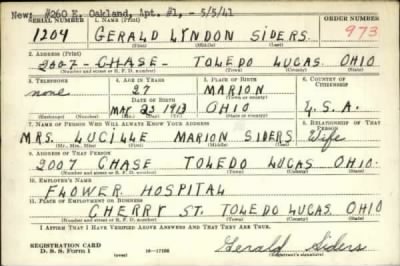 New: #260 E. Oakland, Apt. #1, - 5/5/41
SERIAL NUMBER 1. NAME (Print) ORDER NUMBER
1204 GERALD LYNDON SIDERS 973
(First) (Middle) (Last)
2. ADDRESS (Print)
2007 - CHASE - TOLEDO LUCAS OHIO
(Number and street or R. F. D. number) (Town) (County) (State)
3. TELEPHONE 4. AGE IN YEARS 5. PLACE OF BIRTH 6. COUNTRY OF CITIZENSHIP
none 27 MARION
DATE OF BIRTH (Town or county)
MAY 23 1913 OHIO U.S.A.
(Exchange) (Number) (Mo.) (Day) (Yr.) (State or country)
7. NAME OF PERSON WHO WILL ALWAYS KNOW YOUR ADDRESS 8. RELATIONSHIP OF THAT PERSON
MRS. LUCILLE MARION SIDERS Wife
(Mr., Mrs., Miss) (First) (Middle) (Last)
9. ADDRESS OF THAT PERSON
2007 CHASE TOLEDO LUCAS OHIO
(Number and street or R. F. D. number) (Town) (County) (State)
10. EMPLOYER'S NAME
FLOWER HOSPITAL
11. PLACE OF EMPLOYMENT OR BUSINESS
CHERRY ST. TOLEDO LUCAS OHIO
(Number and street or R. F. D. number) (Town) (County) (State)
I AFFIRM THAT I HAVE VERIFIED ABOVE ANSWERS AND THAT THEY ARE TRUE.
REGISTRATION CARD
D. S. S. Form 1 16-17105 Gerald Siders
(Registrant's signature)